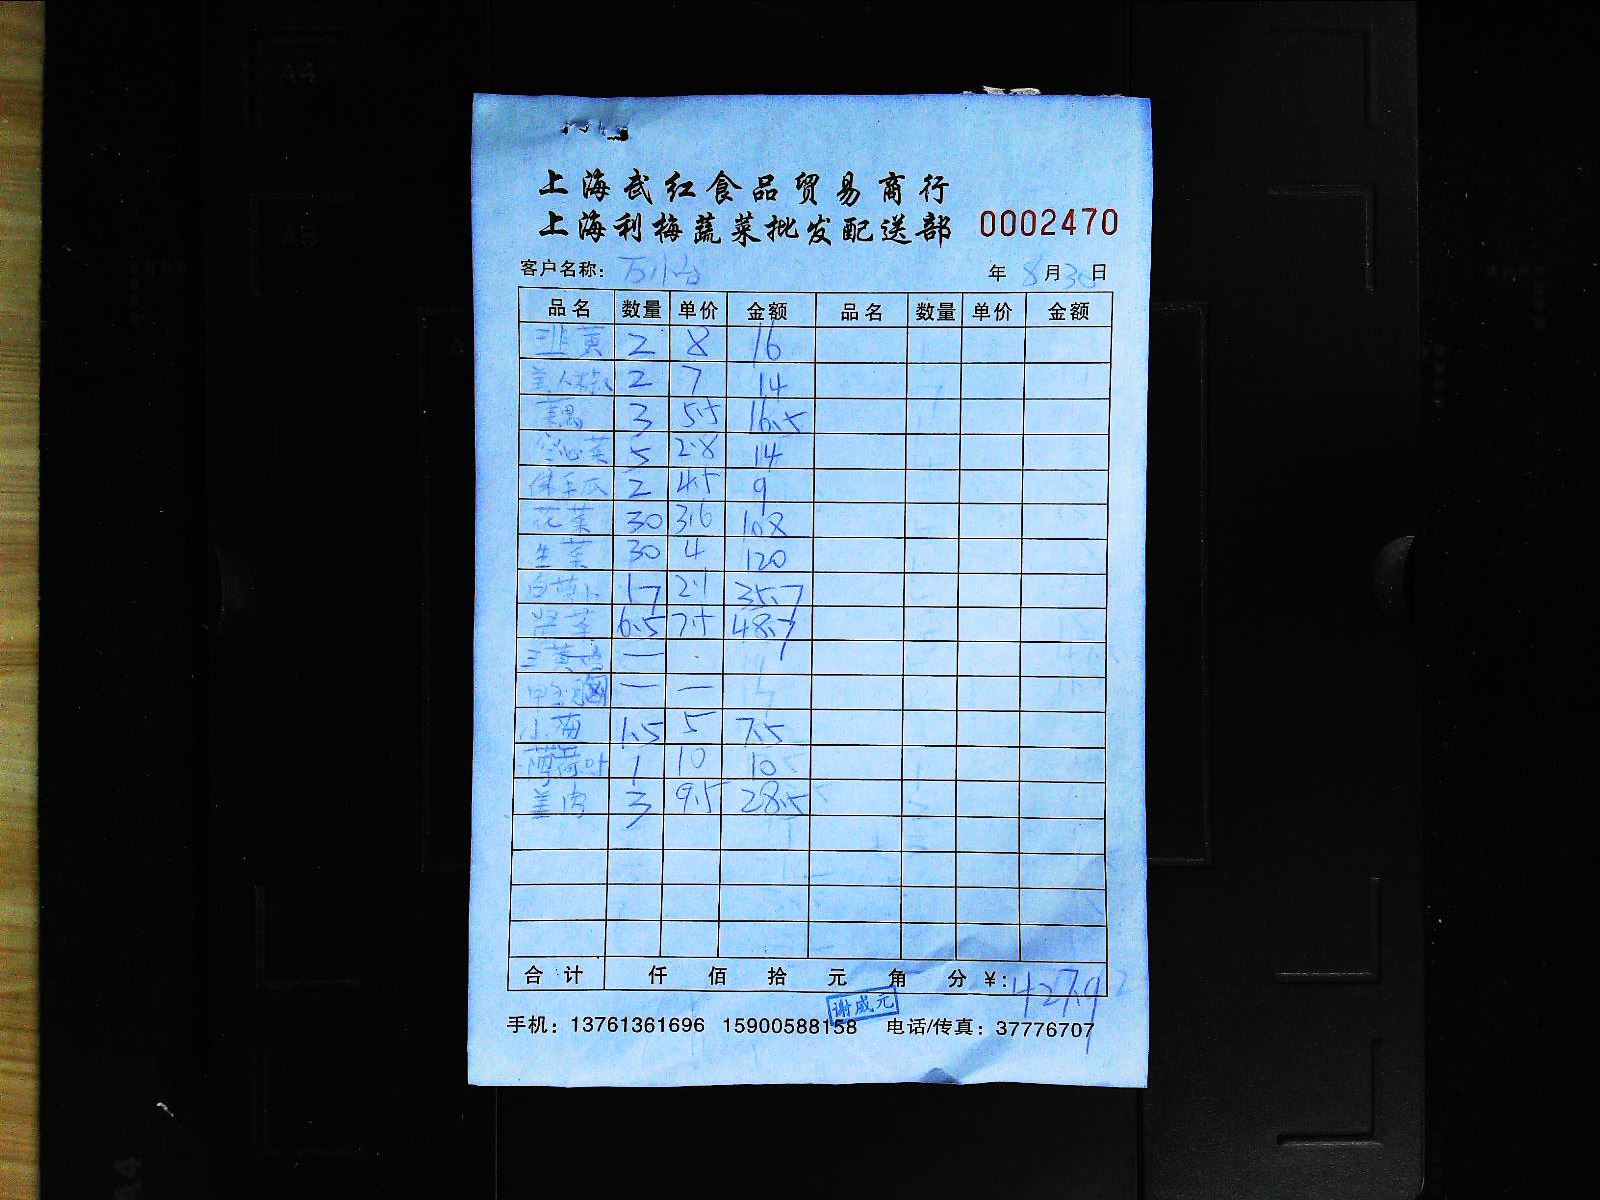 上海武红食品贸易商行
上海利梅蔬菜批发配送部 0002470
客户名称: 年 8月30日
品名 数量 单价 金额 品名 数量 单价 金额
韭黄 2 8 16
美人椒 2 7 14
藕 3 5.5 16.5
空心菜 5 2.8 14
佛手瓜 2 4.5 9
花菜 30 3.6 108
生菜 30 4 120
白萝卜 17 2.1 35.7
6.5 7.5 48.7
三黄 —
— —
小 1.5 5 7.5
薄荷叶 1 10 10
3 9.5 28.5
合计 仟 佰 拾 元 角 分 ¥: 427.9
谢威元
手机: 13761361696 15900588158 电话/传真: 37776707
A4
A5
A4